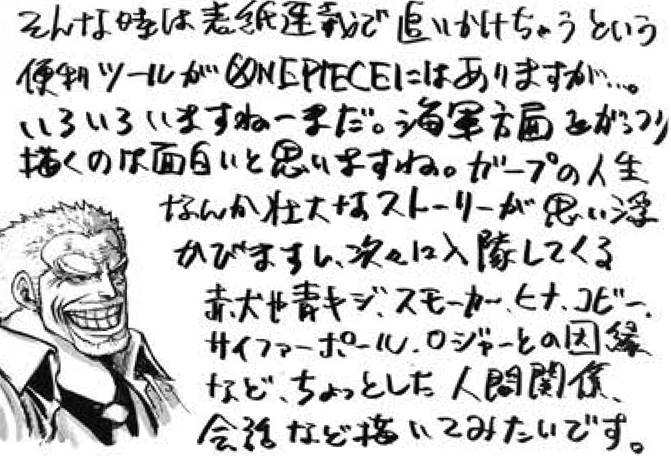 そんな時は表紙連載で追いかけちゃうという
便利ツールがONEPIECEにはありますが…。
いろいろいますねーまだ。海軍方面をがっつり
描くのは面白いと思いますね。ガープの人生
なんか壮大なストーリーが思い浮
かびますし、次々に入隊してくる
赤犬や青キジ、スモーカー、ヒナ、コビー、
サイファーポール、ロジャーとの因縁
など、ちょっとした人間関係、
会話など描いてみたいです。